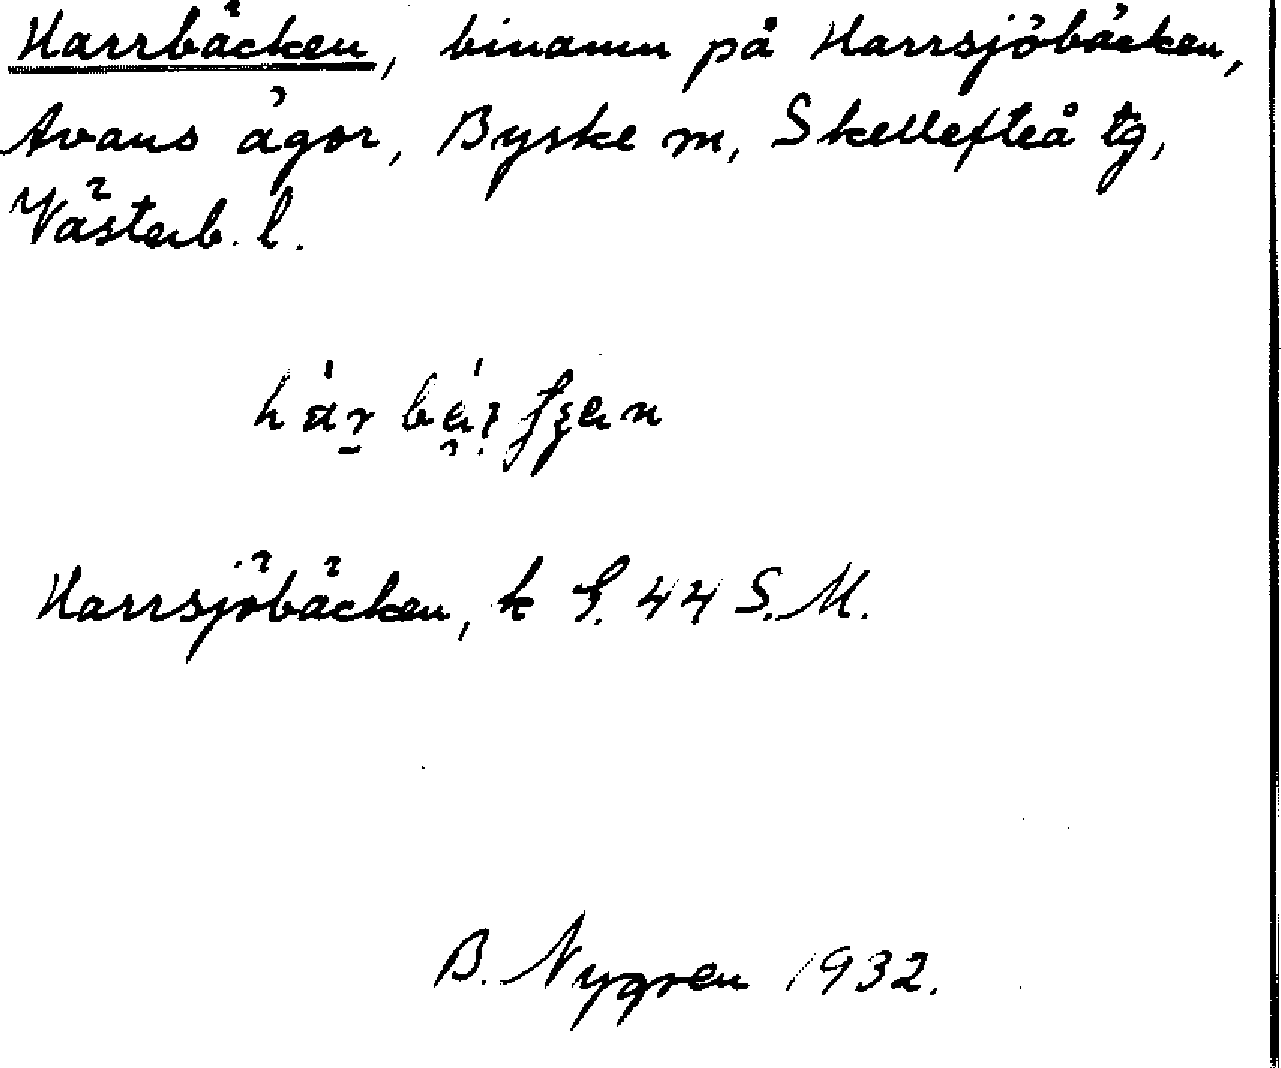 Harrbäcken, binamn på Harrsjöbäcken,
Avans ägor, Byske sn, Skellefteå tg,
Västerb. l.
Harrsjöbäcken, k S. 44 S.M.
B. Nygren 1932.